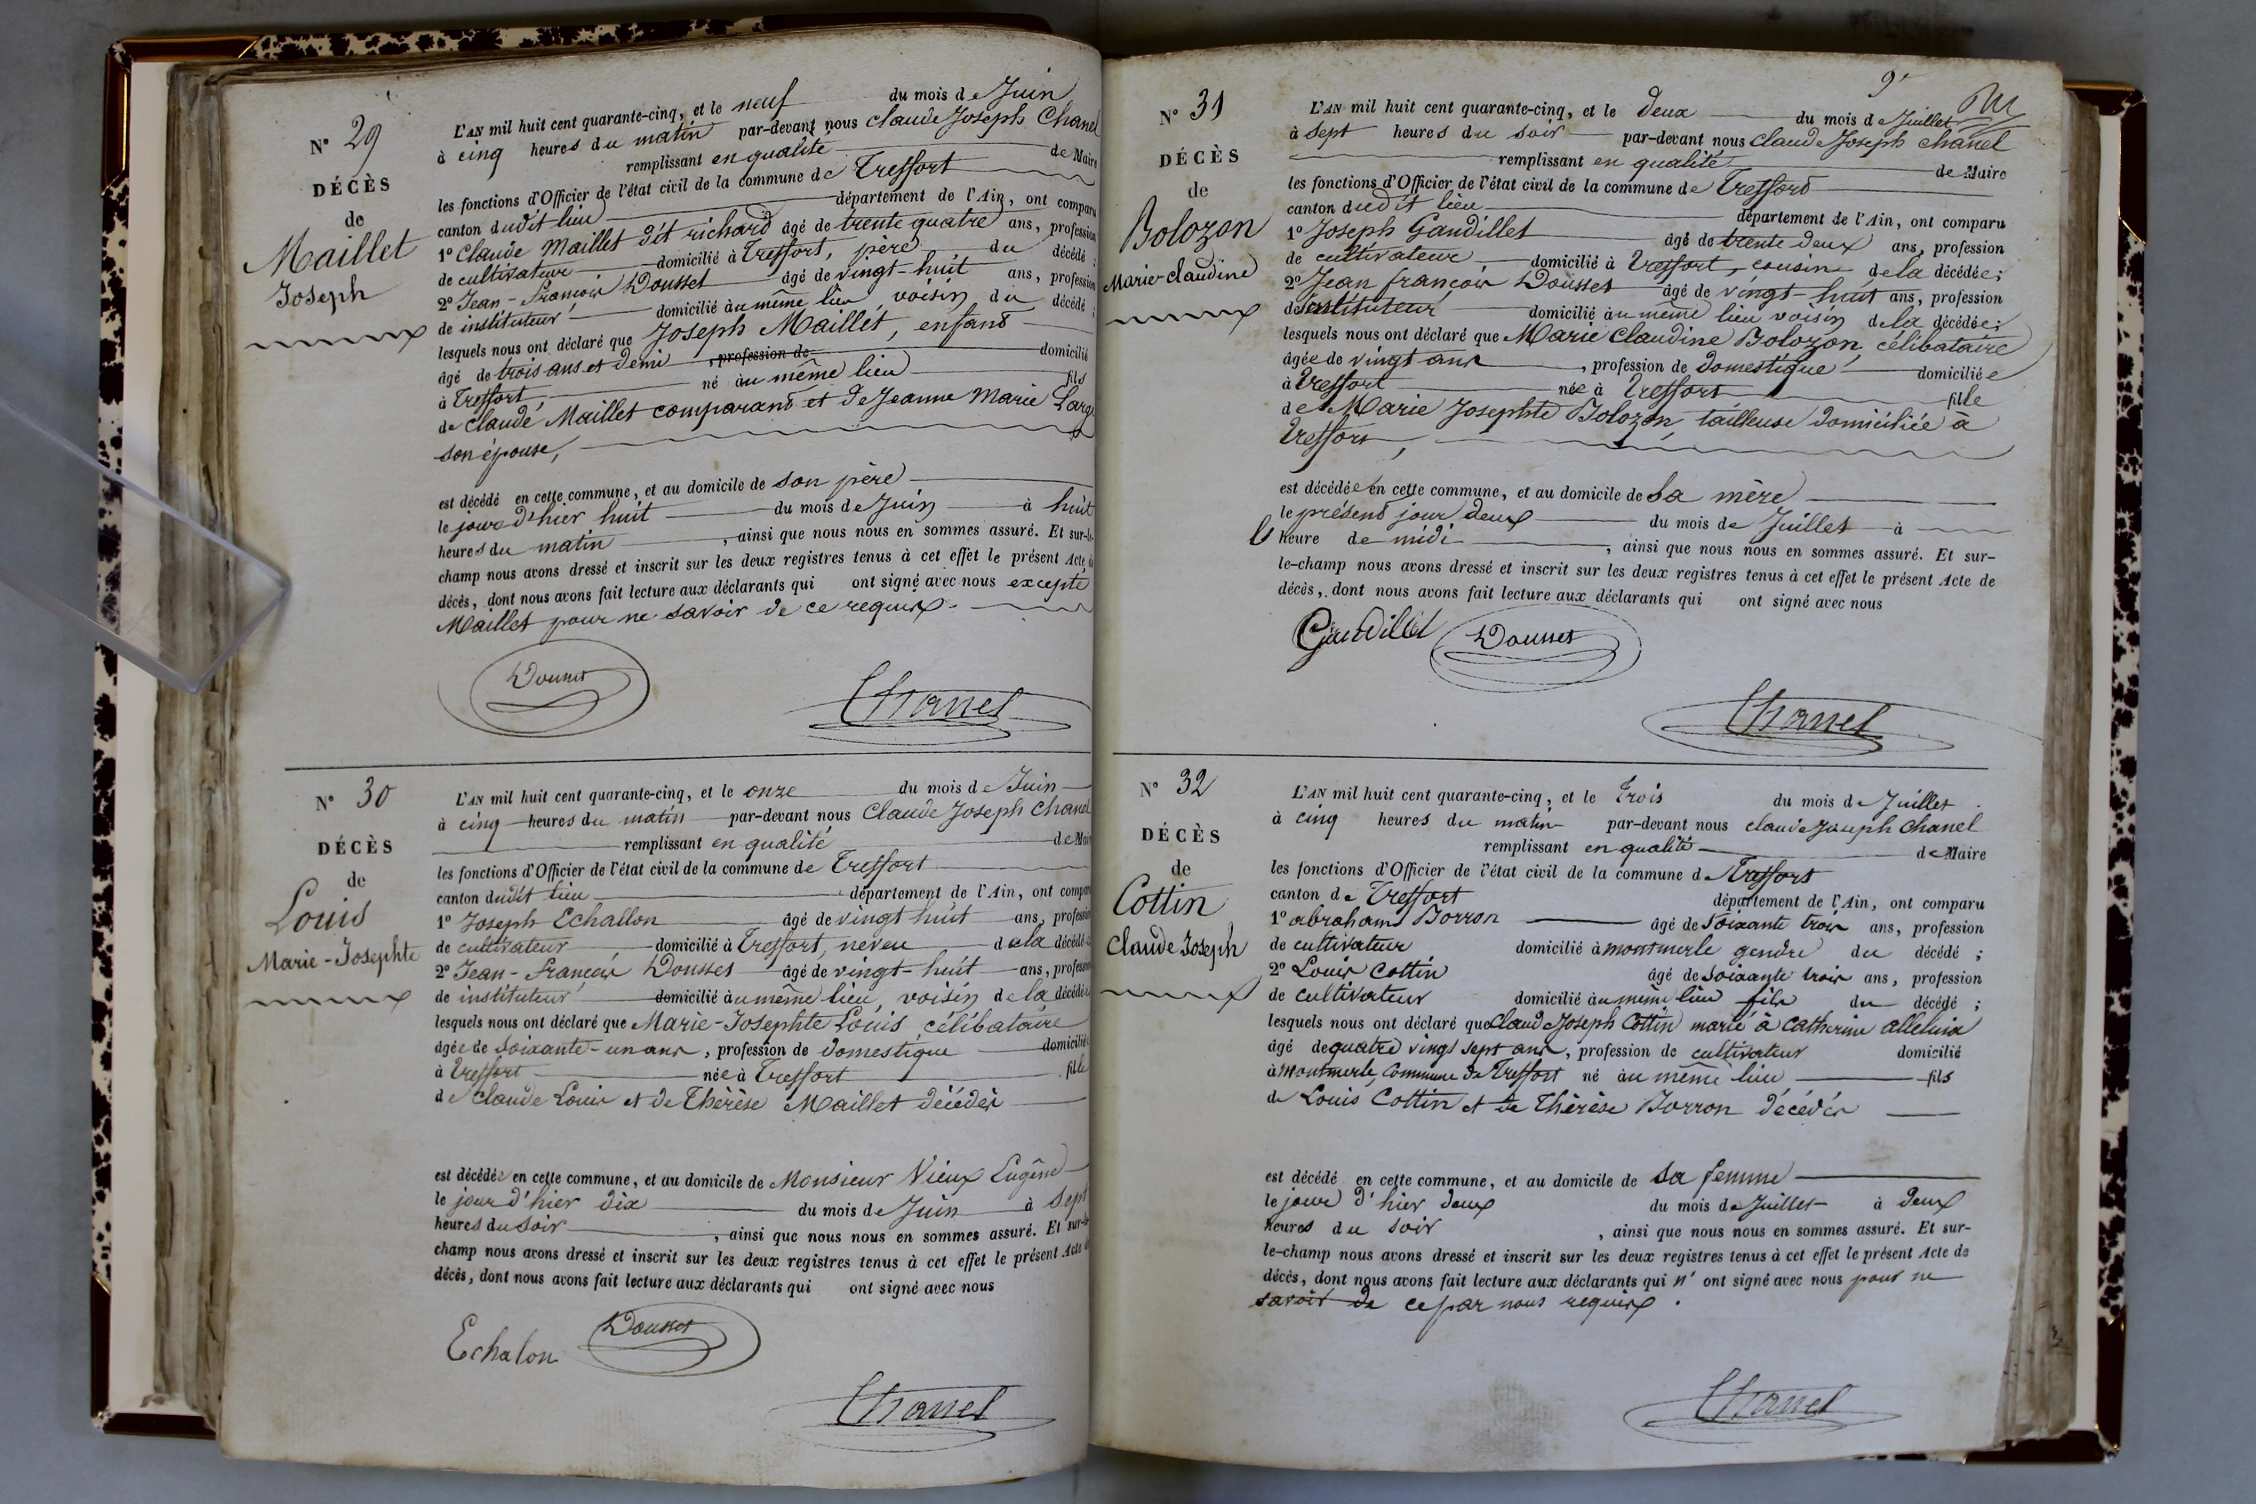 N° 29
DÉCÈS
de
Maillet
Joseph
L'AN mil huit cent quarante-cinq, et le neuf du mois de Juin
à cinq heures du matin par-devant nous Claude Joseph Chanel
remplissant en qualité de Maire
les fonctions d'Officier de l'état civil de la commune de Treffort
canton dudit lieu département de l'Ain, ont comparu
1° Claude Maillet dit richard âgé de trente quatre ans, profession
de cultivateur domicilié à Treffort, père du décédé ;
2° Jean-François Dousset âgé de vingt-huit ans, profession
de instituteur domicilié au même lieu voisin du décédé ;
lesquels nous ont déclaré que Joseph Maillet, enfant
âgé de trois ans et demi , profession de domicilié
à Treffort, né au même lieu fils
de Claude Maillet comparant et de Jeanne Marie Large
son épouse,
est décédé en cette commune, et au domicile de son père
le jour d'hier huit du mois de Juin à huit
heures du matin , ainsi que nous nous en sommes assuré. Et sur-le-
champ nous avons dressé et inscrit sur les deux registres tenus à cet effet le présent Acte de
décès, dont nous avons fait lecture aux déclarants qui ont signé avec nous excepté
Maillet pour ne savoir de ce requis.
Dousset
Chanel
N° 30
DÉCÈS
de
Louis
Marie-Josephte
L'AN mil huit cent quarante-cinq, et le onze du mois de Juin
à cinq heures du matin par-devant nous Claude Joseph Chanel
remplissant en qualité de Maire
les fonctions d'Officier de l'état civil de la commune de Treffort
canton dudit lieu département de l'Ain, ont comparu
1° Joseph Echallon âgé de vingt huit ans, profession
de cultivateur domicilié à Treffort, neveu de la décédée
2° Jean-François Dousset âgé de vingt-huit ans, profession
de instituteur domicilié au même lieu, voisin de la décédée
lesquels nous ont déclaré que Marie-Josephte Louis célibataire
âgée de soixante-un ans, profession de domestique domiciliée
à Treffort née à Treffort fille
de Claude Louis et de Thérèse Maillet décédés
est décédée en cette commune, et au domicile de Monsieur Vieux Eugêne
le jour d'hier dix du mois de Juin à sept
heures du soir , ainsi que nous nous en sommes assuré. Et sur-le-
champ nous avons dressé et inscrit sur les deux registres tenus à cet effet le présent Acte de
décès, dont nous avons fait lecture aux déclarants qui ont signé avec nous
Echalon
Dousset
Chanel
9e
N° 31
DÉCÈS
de
Bolozon
Marie-Claudine
L'AN mil huit cent quarante-cinq, et le deux du mois de Juillet
à sept heures du soir par-devant nous Claude Joseph Chanel
remplissant en qualité de Maire
les fonctions d'Officier de l'état civil de la commune de Treffort
canton dudit lieu département de l'Ain, ont comparu
1° Joseph Gandillet âgé de trente deux ans, profession
de cultivateur domicilié à Treffort, cousin de la décédée ;
2° Jean françois Dousset âgé de vingt-huit ans, profession
d'instituteur domicilié au même lieu voisin de la décédée ;
lesquels nous ont déclaré que Marie Claudine Bolozon, célibataire
âgée de vingt ans , profession de domestique domiciliée
à Treffort née à Treffort fille
de Marie Josephte Bolozon, tailleuse domiciliée à
Treffort,
est décédée en cette commune, et au domicile de sa mère
le présent jour deux du mois de Juillet à
l'heure de midi , ainsi que nous nous en sommes assuré. Et sur-
le-champ nous avons dressé et inscrit sur les deux registres tenus à cet effet le présent Acte de
décès, dont nous avons fait lecture aux déclarants qui ont signé avec nous
Gandillet
Dousset
Chanel
N° 32
DÉCÈS
de
Cottin
Claude Joseph
L'AN mil huit cent quarante-cinq, et le Trois du mois de Juillet
à cinq heures du matin par-devant nous Claude Joseph Chanel
remplissant en qualité de Maire
les fonctions d'Officier de l'état civil de la commune de Treffort
canton de Treffort département de l'Ain, ont comparu
1° abraham Borron âgé de soixante trois ans, profession
de cultivateur domicilié à montmerle gendre du décédé ;
2° Louis Cottin âgé de soixante trois ans, profession
de cultivateur domicilié au même lieu fils du décédé ;
lesquels nous ont déclaré que Claude Joseph Cottin marié à Catherine alleluia
âgé de quatre vingt sept ans, profession de cultivateur domicilié
à Montmerle, Commune de Treffort né au même lieu fils
de Louis Cottin et de Thérèse Borron décédés
est décédé en cette commune, et au domicile de sa femme
le jour d'hier deux du mois de Juillet à deux
heures du soir , ainsi que nous nous en sommes assuré. Et sur-
le-champ nous avons dressé et inscrit sur les deux registres tenus à cet effet le présent Acte de
décès, dont nous avons fait lecture aux déclarants qui n'ont signé avec nous pour ne
savoir de ce par nous requis.
Chanel